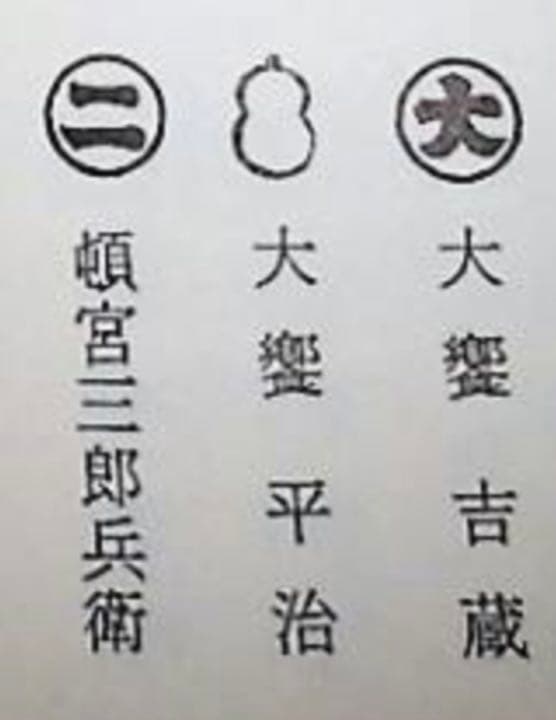 大
大饗吉蔵
大饗平治
二
頓宮三郎兵衛